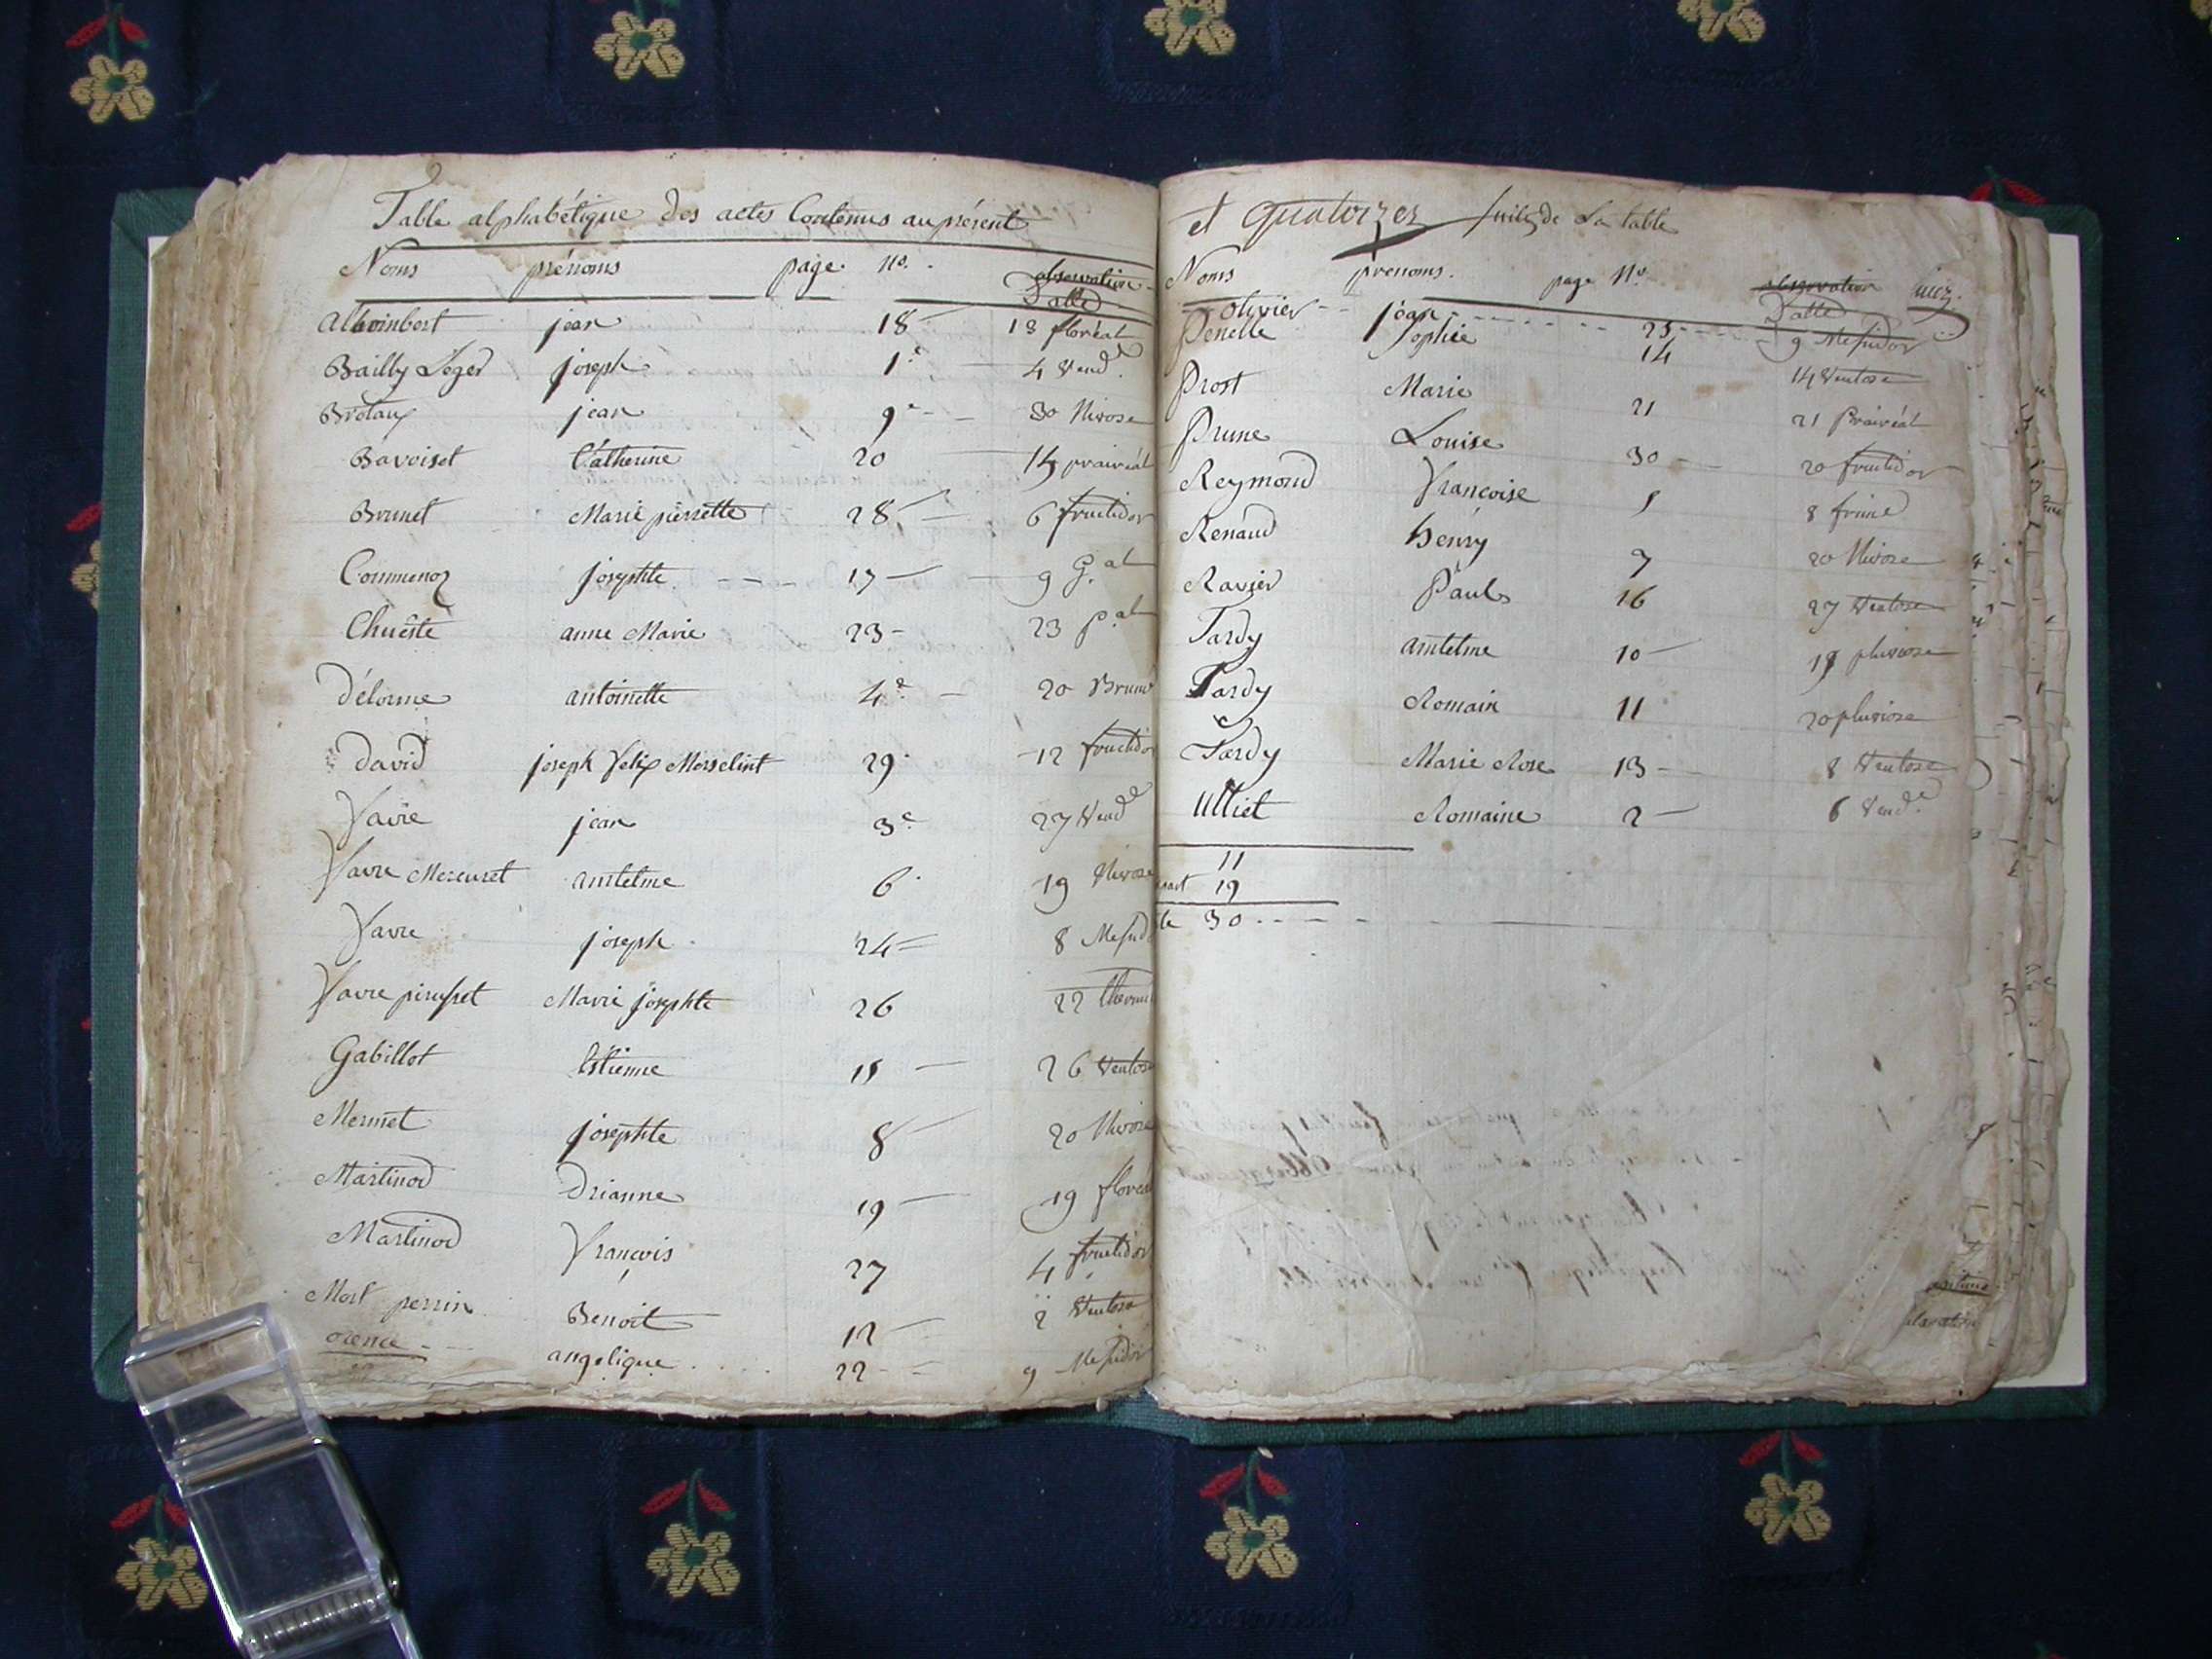 Table alphabétique des actes Contenus au présent
Noms prénoms page No.
observation
Datte
alhoinbert jean 18 18 floréal
Bailly Léger joseph 1.e 4 Vend.e
Brotaux jean 9e 30 Nivose
Bavoiset Catherine 20 14 prairéal
Brunet Marie pierrette 28 6 fructidor
Commenoz josephte 17 9 G.al
Chuête anne Marie 23 23 p.al
Délorme antoinette 4e 20 Brum
David joseph felix Marselint 29 12 fructidor
Favre jean 3e 27 Vend.e
Favre Mercuret antelme 6 19 Nivose
Favre joseph 24 8 Messid
Favre pirusset Marie josephte 26 22 thermi
Gabillot Estienne 15 26 Ventose
Mermet josephte 8 20 Nivose
Martinod Drianne 19 19 floréal
Martinod François 27 4 fructidor
Mort perrin Benoît 12 2 Ventose
orence angelique 22 9 Messidor
et quatorzer suite de La table
Noms prenoms. page No.
observation
Datte
olivier jean 25 9 Messidor
Penelle Sophie 14 14 Ventose
Prost Marie 21 21 Prairéal
Prune Louise 30 20 fructidor
Reymond Françoise 5 8 frime
Renaud henry 7 20 Nivose
Ravier Paul 16 27 Ventose
Tardy antelme 10 19 pluviose
Tardy Romain 11 20 pluviose
Tardy Marie Rose 13 8 Ventose
Ulliet Romaine 2 6 Vend.e
11
19
30